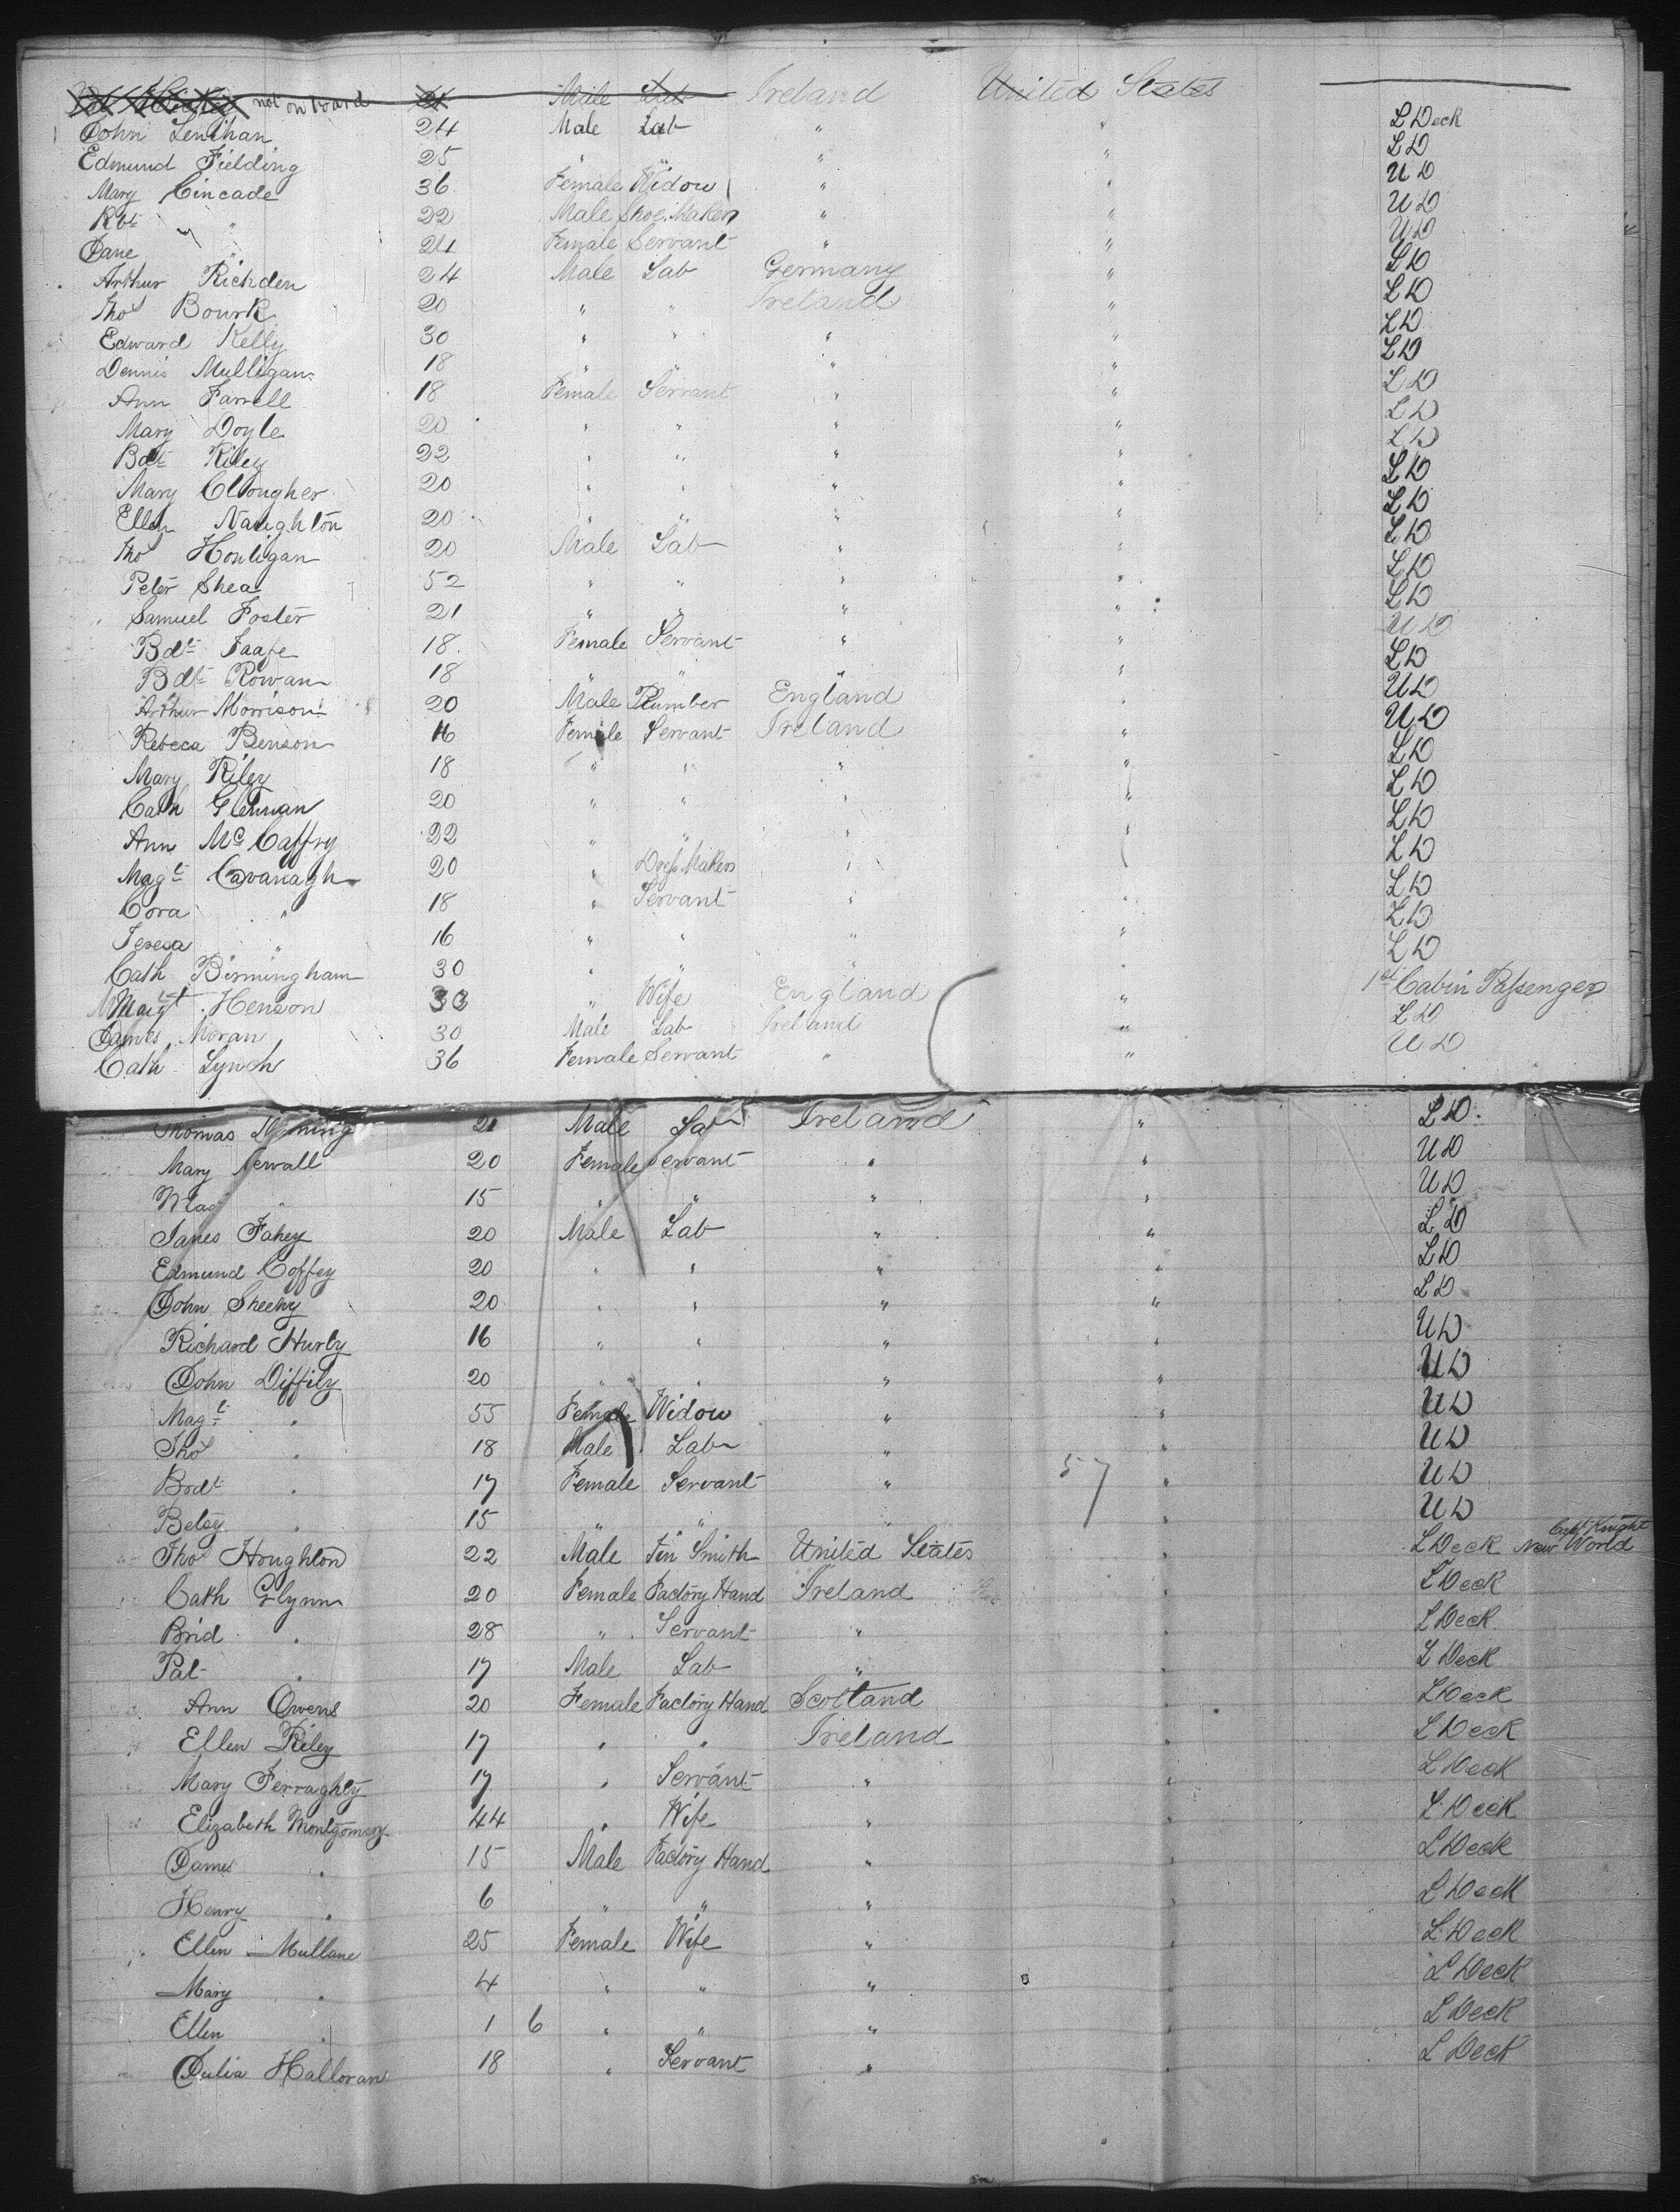 not on board 21 Male Lab Ireland United States
John Lenihan 24 Male Lab " " L Deck
Edmund Fielding 25 " " " " L D
Mary Cincade 36 Female Widow " " U D
Rbt " 22 Male Shoe Maker " " U D
Jane " 24 Female Servant " " U D
Arthur Richden 24 Male Lab Germany " L D
Thos Bourk 20 " " Ireland " L D
Edward Kelly 30 " " " " L D
Dennis Mulligan 18 " " " " L D
Ann Farrell 18 Female Servant " " L D
Mary Doyle 20 " " " " L D
Bdt Riley 22 " " " " L D
Mary Clougher 20 " " " " L D
Ellen Naughton 20 " " " " L D
Thos Houligan 20 Male Lab " " L D
Peter Shea 52 " " " " L D
Samuel Foster 21 " " " " L D
Bdt Faafe 18 Female Servant " " U D
Bdt Rowan 18 " " " " L D
Arthur Morrison 20 Male Plumber England " U D
Rebeca Benson 16 Female Servant Ireland " U D
Mary Riley 18 " " " " L D
Cath Glennan 20 " " " " L D
Ann McCaffry 22 " " " " L D
Magt Cavanagh 20 " Dress Maker " " L D
Cora " 18 " Servant " " L D
Teresa " 16 " " " " L D
Cath Birmingham 30 " " " " L D
Margt Henson 33 " Wife England " 1st Cabin Passenger
James Moran 30 Male Lab Ireland " L D
Cath Lynch 36 Female Servant " " U D
Thomas 21 Male Lab Ireland " L D
Mary Newall 20 Female Servant " " U D
Mag " 15 " " " " U D
James Fahey 20 Male Lab " " L D
Edmund Coffey 20 " " " " L D
John Sheehy 20 " " " " L D
Richard Hurly 16 " " " " U D
John Diffily 20 " " " " U D
Magt " 55 Female Widow " " U D
Thos " 18 Male Lab " " U D
Bridt " 17 Female Servant " 57 " U D
Betsy " 15 " " " " U D
Thos Houghton 22 Male Tin Smith United States " L Deck Capt Knight New World
Cath Glynn 20 Female Factory Hand Ireland " L Deck
Brid " 28 " Servant " " L Deck
Pat " 17 Male Lab " " L Deck
Ann Owens 20 Female Factory Hand Scotland " L Deck
Ellen Riley 17 " " Ireland " L Deck
Mary Ferraghty 17 " Servant " " L Deck
Elizabeth Montgomery 44 " Wife " " L Deck
James " 15 Male Factory Hand " " L Deck
Henry " 6 " " " " L Deck
Ellen Mullane 25 Female Wife " " L Deck
Mary " 4 " " " " L Deck
Ellen " 1 6 " " " " L Deck
Julia Halloran 18 " Servant " " L Deck